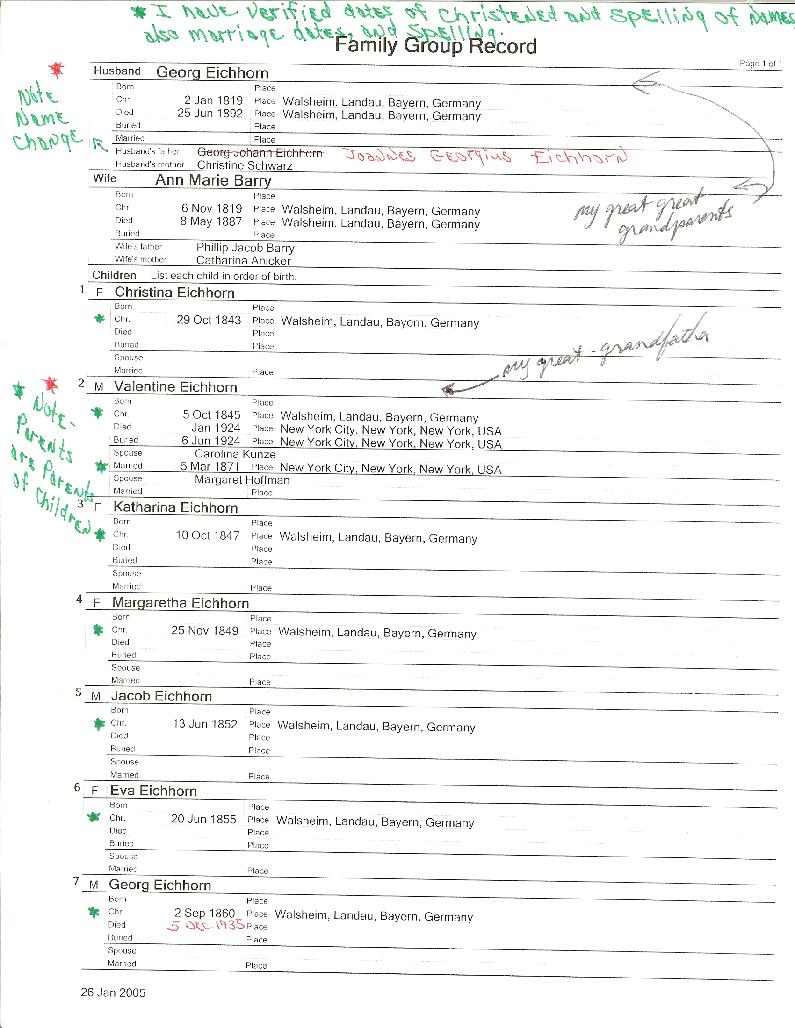 * I have verified dates of Christened and Spelling of Names
also marriage dates, and Spelling.
Family Group Record
Page 1 of 1
* Note Name Change
Husband Georg Eichhorn
Born Place
Chr. 2 Jan 1819 Place Walsheim, Landau, Bayern, Germany
Died 25 Jun 1892 Place Walsheim, Landau, Bayern, Germany
Buried Place
Married Place
Husband's father Georg Johann Eichhorn Joannes Georgius Eichhorn
Husband's mother Christine Schwarz
Wife Ann Marie Barry
my great great grandparents
Born Place
Chr. 6 Nov 1819 Place Walsheim, Landau, Bayern, Germany
Died 8 May 1887 Place Walsheim, Landau, Bayern, Germany
Buried Place
Wife's father Phillip Jacob Barry
Wife's mother Catharina Anicker
Children List each child in order of birth.
1 F Christina Eichhorn
Born Place
* Chr. 29 Oct 1843 Place Walsheim, Landau, Bayern, Germany
Died Place
Buried Place
Spouse
Married Place
my great-grandfather
2 M Valentine Eichhorn
* * Note - Parents are Parents of Children
Born Place
* Chr. 5 Oct 1845 Place Walsheim, Landau, Bayern, Germany
Died Jan 1924 Place New York City, New York, New York, USA
Buried 6 Jun 1924 Place New York City, New York, New York, USA
Spouse Carolina Kunze
* Married 5 Mar 1871 Place New York City, New York, New York, USA
Spouse Margaret Hoffman
Married Place
3 F Katharina Eichhorn
Born Place
* Chr. 10 Oct 1847 Place Walsheim, Landau, Bayern, Germany
Died Place
Buried Place
Spouse
Married Place
4 F Margaretha Eichhorn
Born Place
* Chr. 25 Nov 1849 Place Walsheim, Landau, Bayern, Germany
Died Place
Buried Place
Spouse
Married Place
5 M Jacob Eichhorn
Born Place
* Chr. 13 Jun 1852 Place Walsheim, Landau, Bayern, Germany
Died Place
Buried Place
Spouse
Married Place
6 F Eva Eichhorn
Born Place
* Chr. 20 Jun 1855 Place Walsheim, Landau, Bayern, Germany
Died Place
Buried Place
Spouse
Married Place
7 M Georg Eichhorn
Born Place
* Chr. 2 Sep 1860 Place Walsheim, Landau, Bayern, Germany
Died 5 Dec. 1935 Place
Buried Place
Spouse
Married Place
26 Jan 2005